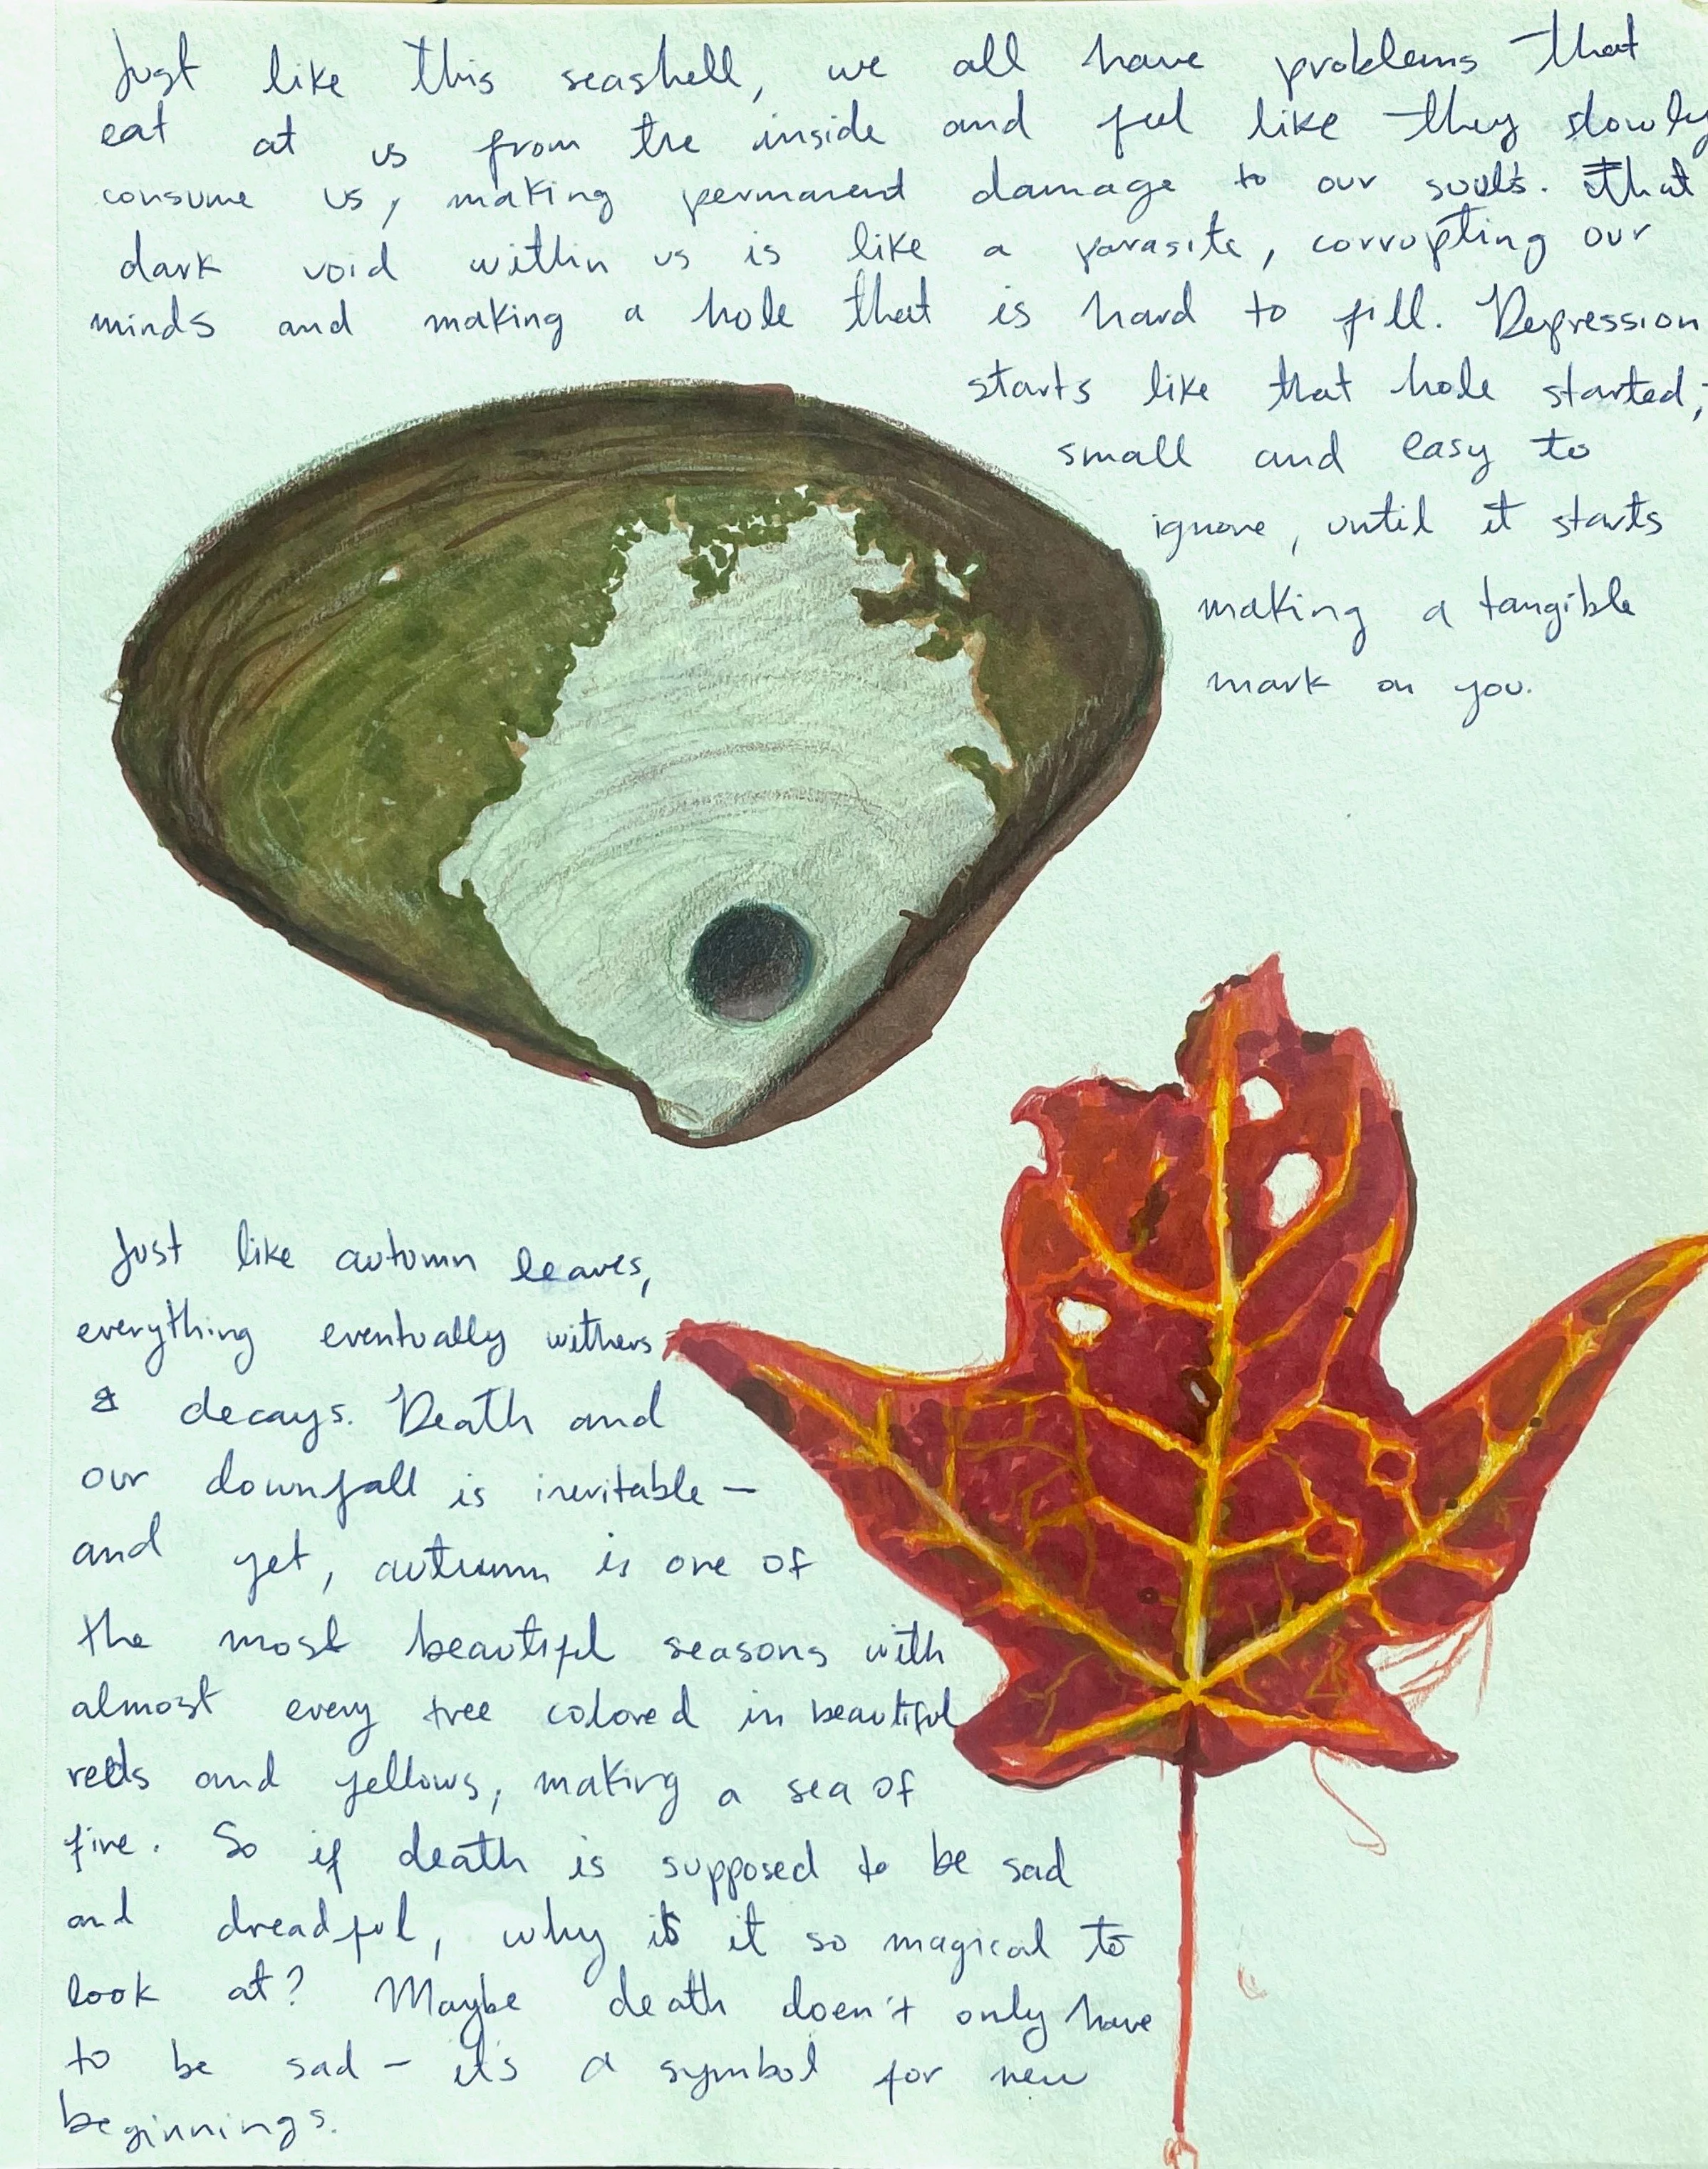 Just like this seashell, we all have problems that
eat at us from the inside and feel like they slowly
consume us, making permanent damage to our souls. That
dark void within us is like a parasite, corrupting our
minds and making a hole that is hard to fill. Depression
starts like that hole started,
small and easy to
ignore, until it starts
making a tangible
mark on you.
Just like autumn leaves,
everything eventually withers
& decays. Death and
our downfall is inevitable —
and yet, autumn is one of
the most beautiful seasons with
almost every tree colored in beautiful
reds and yellows, making a sea of
fire. So if death is supposed to be sad
and dreadful, why is it so magical to
look at? Maybe death doen't only have
to be sad - it's a symbol for new
beginnings.